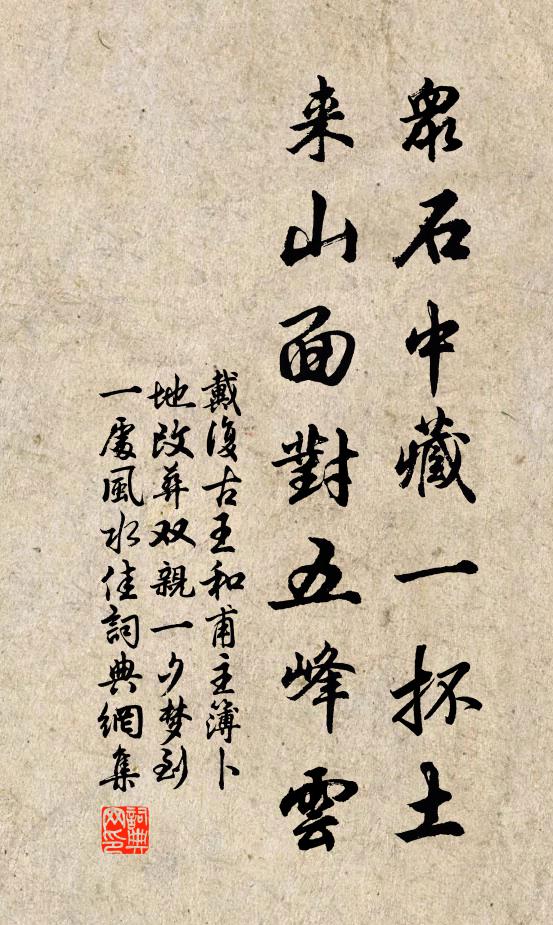 眾石中藏一抔土
来山面對五峰雲
戴復古王和甫主簿卜
地改葬双親一夕梦到
一處風水佳詞典網集
詞典
网印